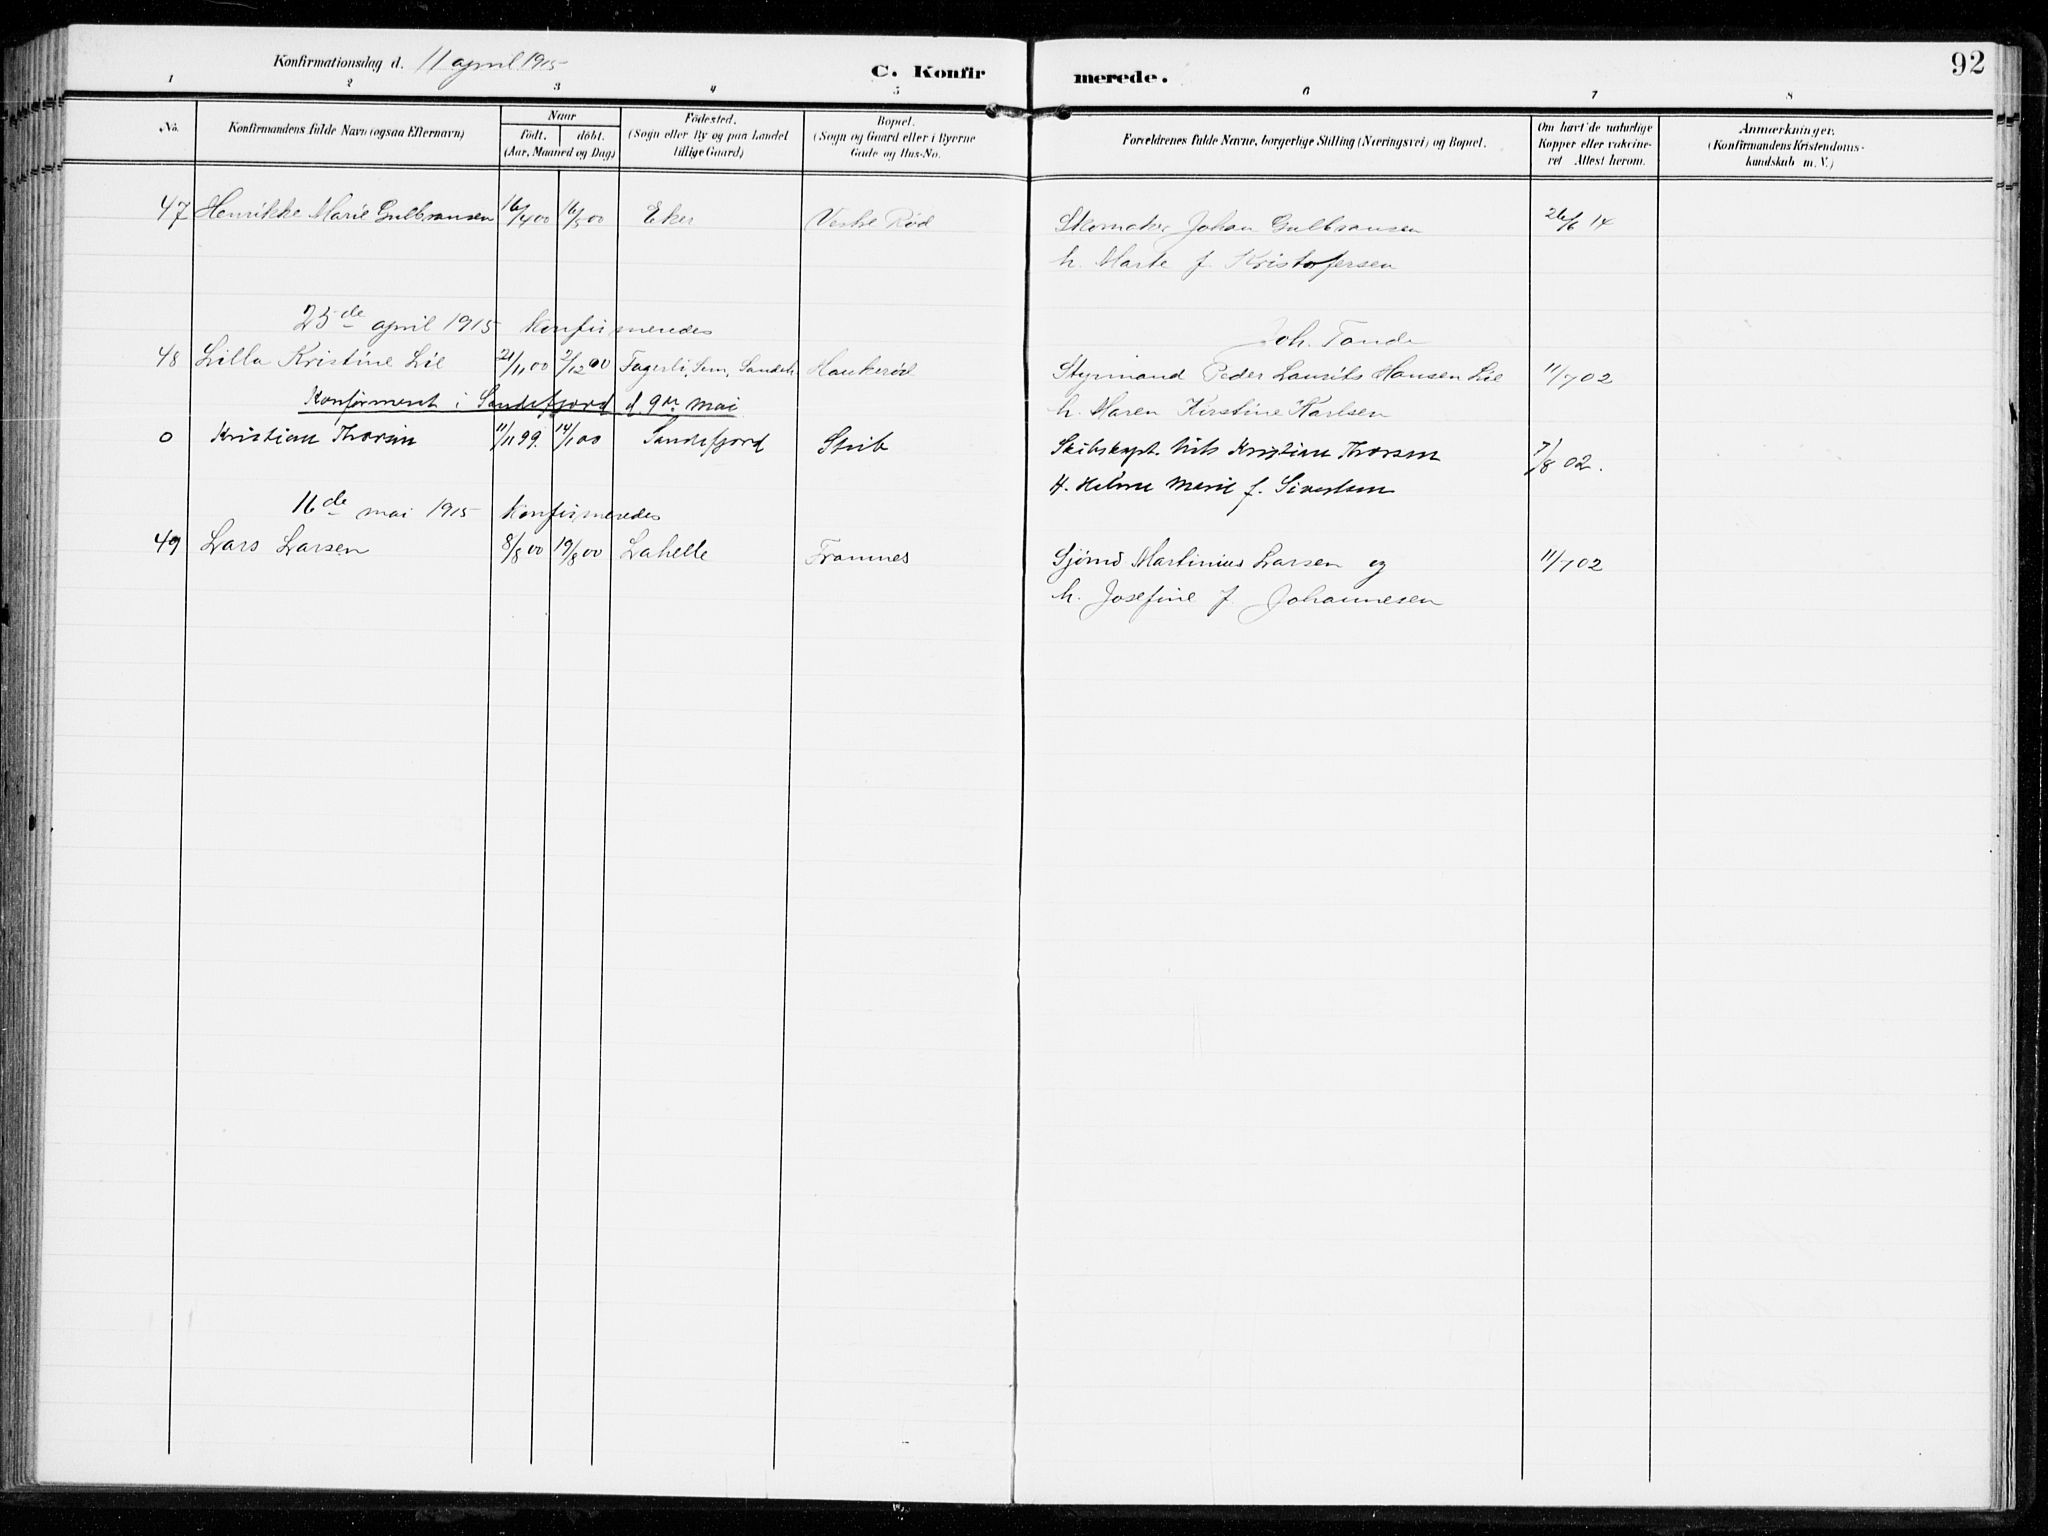 Konfirmationsdag d. 11 april 1915
C. Konfirmerede.
92
1 2 3 4 5 6 7 8
No. Konfirmandens fulde Navn (ogsaa Efternavn) Naar født. døbt. (Aar, Maaned og Dag) Fødested. (Sogn eller By og paa Landet tillige Gaard) Bopæl. (Sogn og Gaard eller i Byerne Gade og Hus-No. Forældrenes fulde Navne, borgerlige Stilling (Næringsvei) og Bopæl. Om havt de naturlige Kopper eller vakcineret Attest herom. Anmærkninger. (Konfirmandens Kristendomskundskab m. V.)
47 Henrikke Marie Gulbransen 16/4 00 16/5 00 Eker Vestre Rød Skomaker Johan Gulbransen 26/6 14
h. Marte f. Kristofersen
25de april 1915 Konfirmeredes Joh. Tande
48 Lilla Kristine Lie 21/11 00 2/12 00 Fagerli, Sem, Sandeh. Haukerød Styrmand Peder Laurits Hansen Lie 11/7 02
h. Maren Kirstine Karlsen
Konfirmeret i Sandefjord d. 9de mai
0 Kristian Thorsen 11/11 99. 14/1 00 Sandefjord Stub Skibskapt. Nils Kristian Thorsen 7/8 02.
H. Helene Marie f. Sivertsen
16de mai 1915 Konfirmeredes
49 Lars Larsen 8/8 00 19/8 00 Lahelle Framnes Sjømd Martinius Larsen og 11/7 02
h. Josefine f. Johannesen